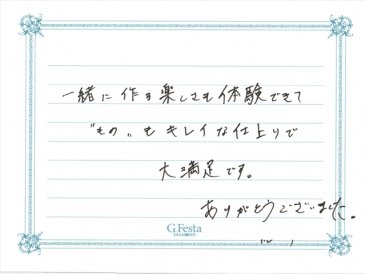 一緒に作る楽しさも体験できて
"もの"もキレイな仕上りで
大満足です。
ありがとうございました。
G.Festa
DIAMOND